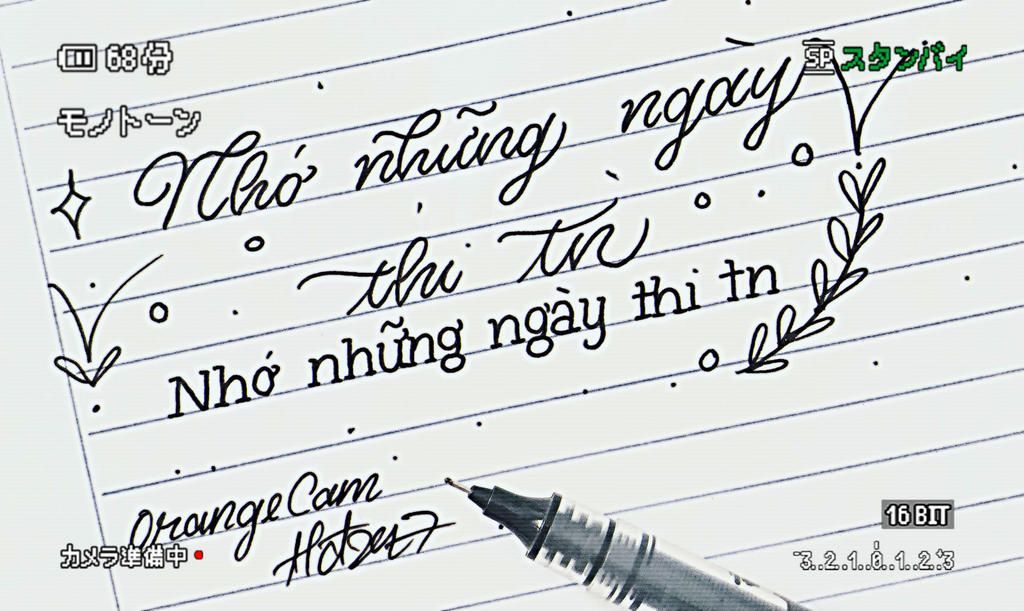 68分
SP スタンバイ
モノトーン
Nhớ những ngày
thi tn
Nhớ những ngày thi tn
OrangeCam
16 BIT
カメラ準備中
3..2..1..0..1..2..3